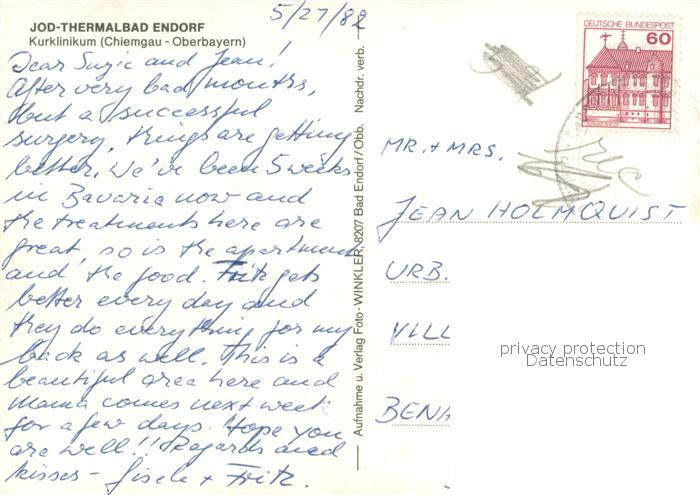 JOD-THERMALBAD ENDORF
Kurklinikum (Chiemgau - Oberbayern)
5/27/82
Dear Suzie and Jean!
After very bad months,
but a successful
surgery, things are getting
better. We've been 5 weeks
in Bavaria now and
the treatments here are
great, so is the apartment
and the food. Fritz gets
better every day and
they do everything for my
back as well. This is a
beautiful area here and
Mama comes next week
for a few days. Hope you
are well!! Regards and
kisses - Gisela + Fritz.
Aufnahme u. Verlag Foto-WINKLER, 8207 Bad Endorf/Obb. Nachdr. verb.
DEUTSCHE BUNDESPOST
60
MR. + MRS.
JEAN HOLMQUIST
URB.
VILL
BENA
privacy protection
Datenschutz